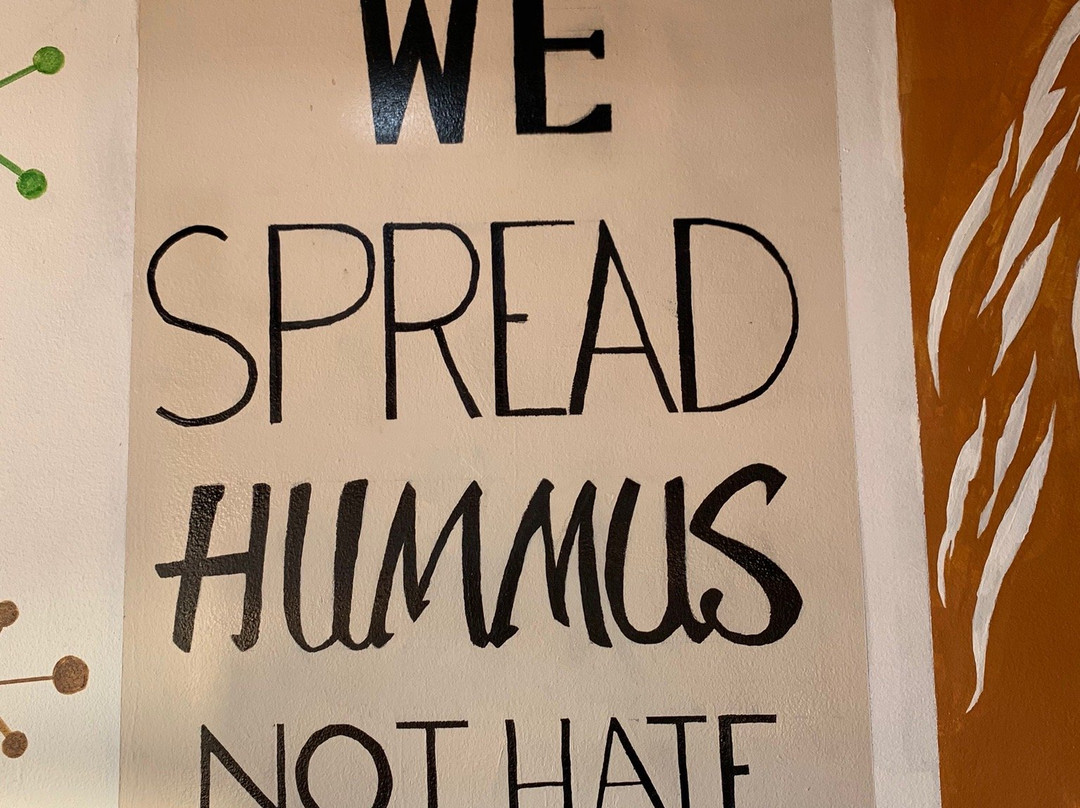 WE
SPREAD
HUMMUS
NOT HATE